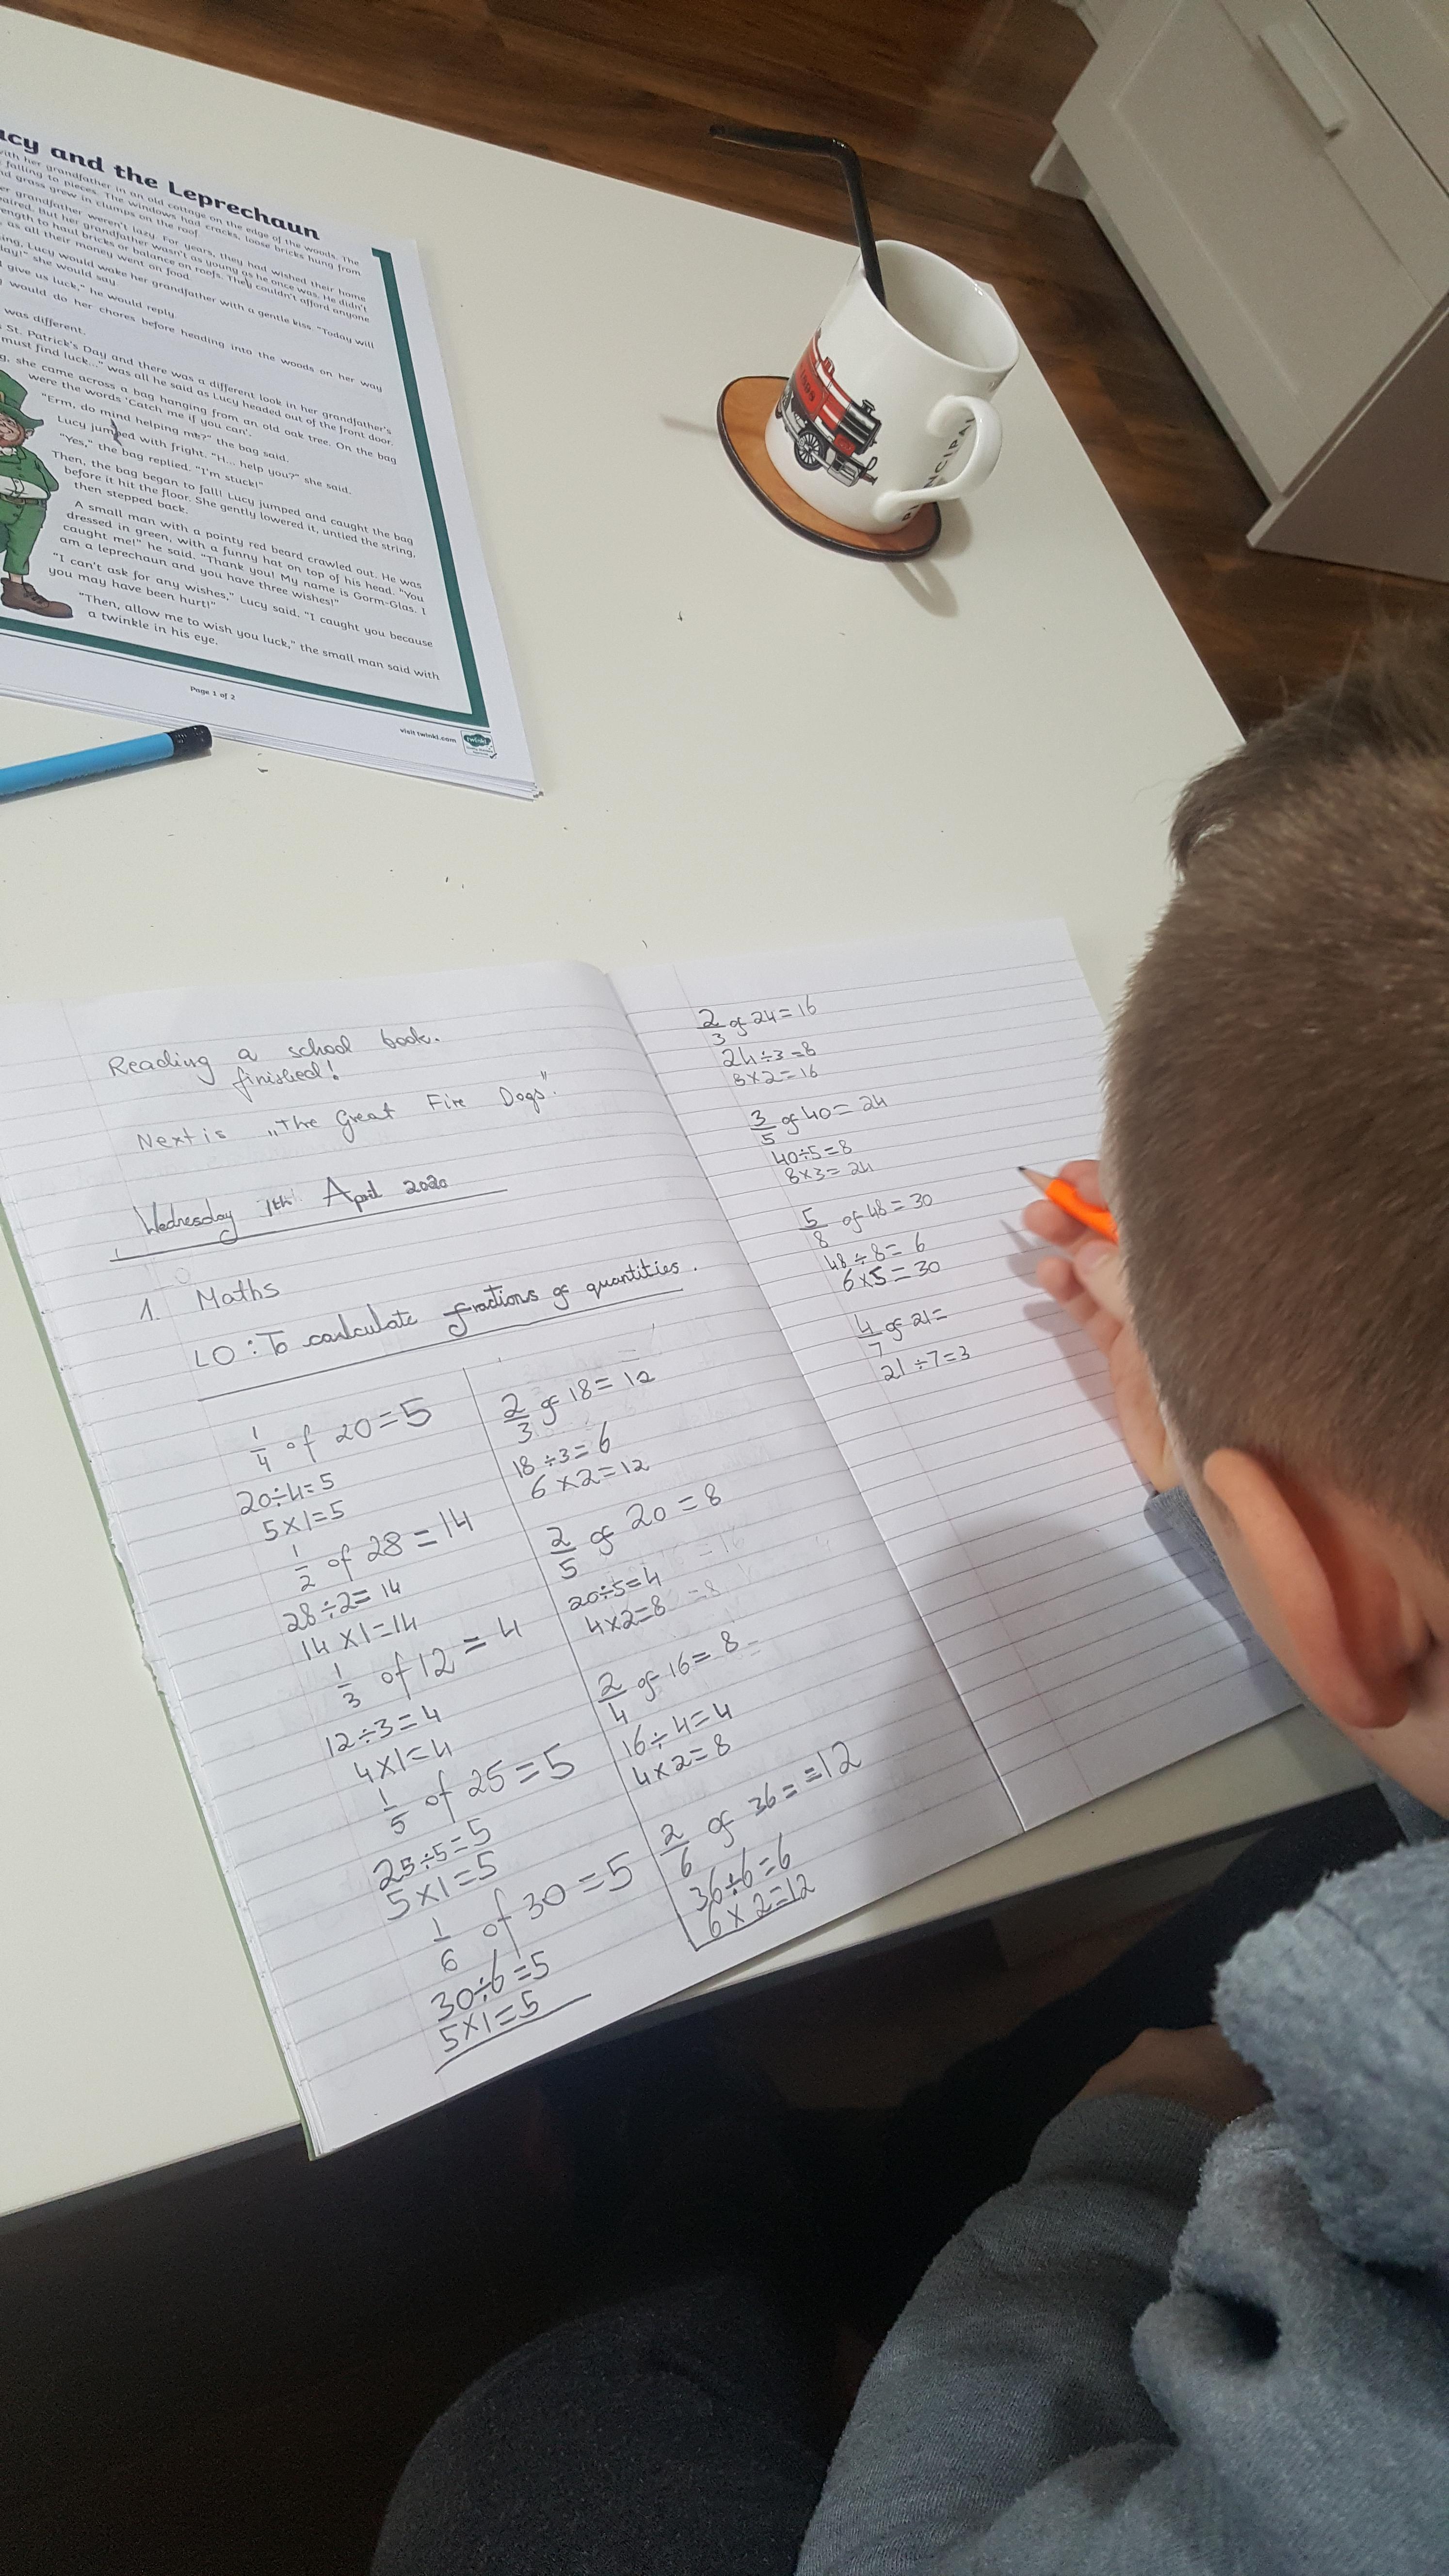 and the Leprechaun
with her grandfather in an old cottage on the edge of the woods. The
falling to pieces. The windows had cracks, loose bricks hung from
grass grew in clumps on the roof.
grandfather weren't lazy. For years, they had wished their home
But her grandfather wasn't as young as he once was. He didn't
to haul bricks or balance on roofs. They couldn't afford anyone
as all their money went on food.
Lucy would wake her grandfather with a gentle kiss. "Today will
she would say.
give us luck," he would reply.
would do her chores before heading into the woods on her way
was different.
St. Patrick's Day and there was a different look in her grandfather's
must find luck..." was all he said as Lucy headed out of the front door.
she came across a bag hanging from an old oak tree. On the bag
were the words 'Catch me if you can'.
"Erm, do mind helping me?" the bag said.
Lucy jumped with fright. "H... help you?" she said.
"Yes," the bag replied. "I'm stuck!"
Then, the bag began to fall! Lucy jumped and caught the bag
before it hit the floor. She gently lowered it, untied the string,
then stepped back.
A small man with a pointy red beard crawled out. He was
dressed in green, with a funny hat on top of his head. "You
caught me!" he said. "Thank you! My name is Gorm-Glas. I
am a leprechaun and you have three wishes!"
"I can't ask for any wishes," Lucy said, "I caught you because
you may have been hurt!"
"Then, allow me to wish you luck," the small man said with
a twinkle in his eye.
Page 1 of 2
visit twinkl.com
twinkl
1899
Reading a school book.
finished!
Next is „The Great Fire Dogs".
Wednesday 1th April 2020
1. Maths
LO: To canlculate fractions of quantities.
1/4 of 20=5
20÷4=5
5×1=5
1/2 of 28=14
28÷2=14
14×1=14
1/3 of 12=4
12÷3=4
4×1=4
1/5 of 25=5
25÷5=5
5×1=5
1/6 of 30=5
30÷6=5
5×1=5
2/3 of 18=12
18÷3=6
6×2=12
2/5 of 20=8
20÷5=4
4×2=8
2/4 of 16=8
16÷4=4
4×2=8
2/6 of 36==12
36÷6=6
6×2=12
2/3 of 24=16
24÷3=8
8×2=16
3/5 of 40=24
40÷5=8
8×3=24
5/8 of 48=30
48÷8=6
6×5=30
4/7 of 21=
21÷7=3